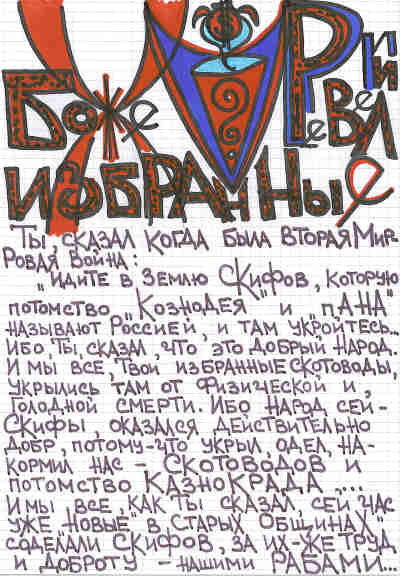 Боже
Ревекки
избранные
Ты, сказал когда была Вторая Мир-
ровая Война:
"идите в Землю Скифов, которую
потомство "Кознодея" и "пАНА"
называют Россией, и там укройтесь...
Ибо, Ты, сказал, что это добрый народ.
И мы все, Твои избранные скотоводы,
укрылись там от физической и,
голодной смерти. Ибо народ сей -
Скифы, оказался действительно
добр, потому-что укрыл, одел, на-
кормил нас - скотоводов и
потомство Казнокрада ,...
И мы все, как Ты сказал, сей час
уже "новые" в старых общинах
соделали Скифов, за их-же труд
и доброту - нашими РАБАМИ...